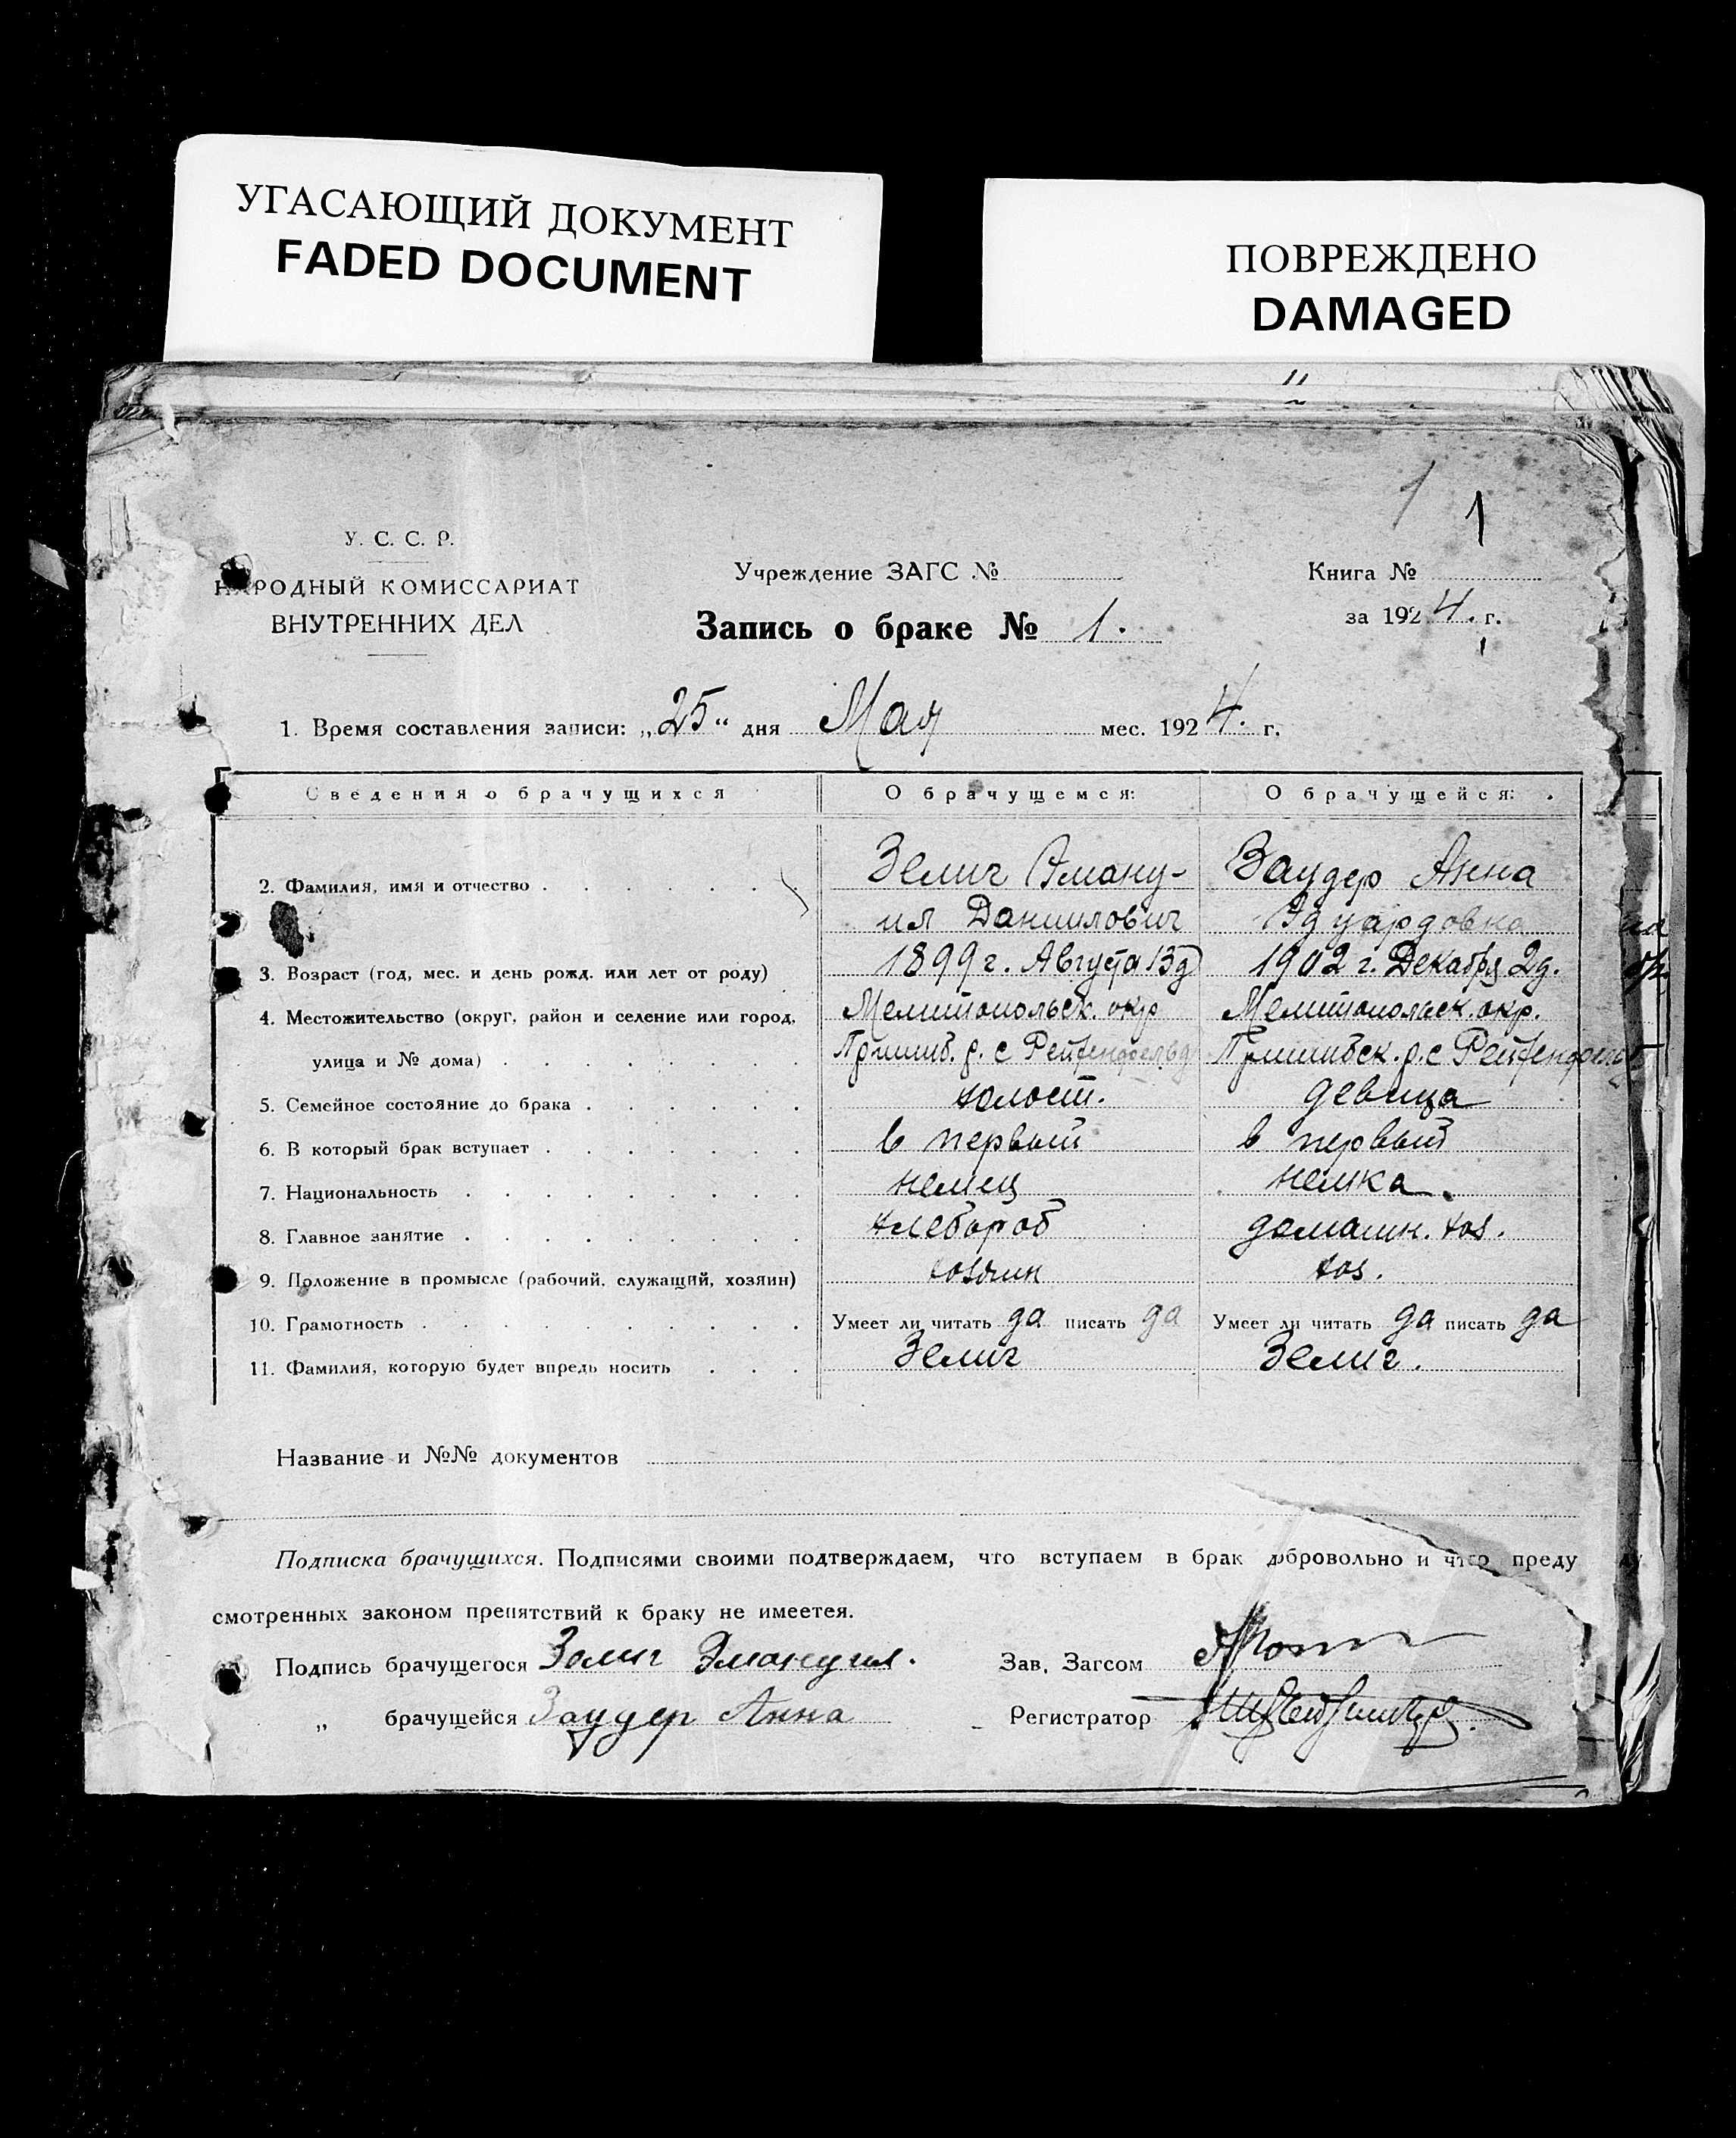 УГАСАЮЩИЙ ДОКУМЕНТ
FADED DOCUMENT
ПОВРЕЖДЕНО
DAMAGED
1 1
У. С. С. Р.
НАРОДНЫЙ КОМИССАРИАТ
ВНУТРЕННИХ ДЕЛ
Учреждение ЗАГС №
Запись о браке № 1.
Книга №
за 1924. г.
1. Время составления записи: „25“ дня Мая мес. 1924. г.
Сведения о брачущихся О брачущемся: О брачущейся:
2. Фамилия, имя и отчество Зелиг Эману- Заудер Анна
ил Даниилович Эдуардовна
3. Возраст (год, мес. и день рожд. или лет от роду) 1899 г. Августа 13 д 1902 г. Декабря 2 д.
4. Местожительство (округ, район и селение или город, Мелитопольск. окр Мелитопольск. окр.
улица и № дома) Пришиб. р. с Рейхенфельд Пришибск. р. с Рейхенфельд
5. Семейное состояние до брака холост. девица
6. В который брак вступает в первый в первый
7. Национальность немец немка.
8. Главное занятие хлебороб домашн. хоз.
9. Положение в промысле (рабочий, служащий, хозяин) хозяин хоз.
10. Грамотность Умеет ли читать да писать да Умеет ли читать да писать да
11. Фамилия, которую будет впредь носить Зелиг Зелиг.
Название и №№ документов
Подписка брачущихся. Подписями своими подтверждаем, что вступаем в брак добровольно и что преду
смотренных законом препятствий к браку не имеетея.
Подпись брачущегося Зелиг Эмануил. Зав. Загсом
„ брачущейся Заудер Анна Регистратор